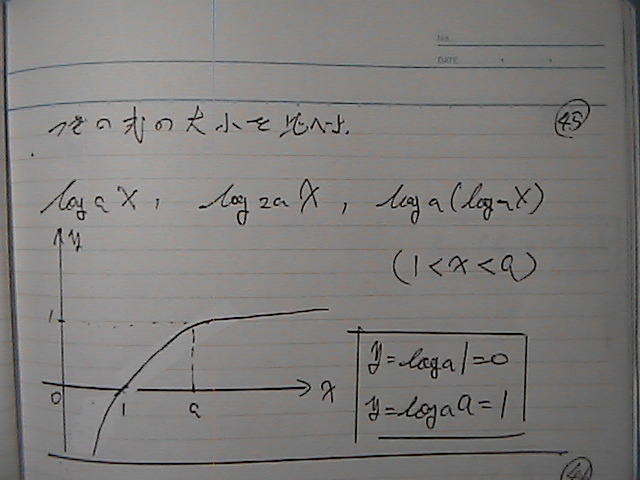 No.
DATE
次の式の大小を比べよ.
45
log a X, log 2a X, log a (log a X)
(1<x<a)
y
1
0 1 a x
y=log a 1=0
y=log a a=1